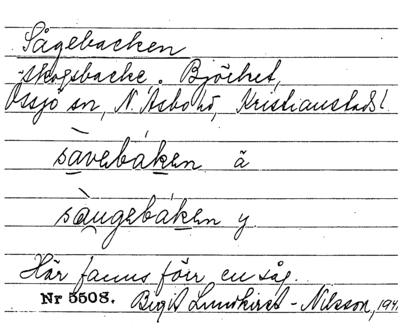 Sågebacken
skogsbacke. Björket,
Össjö sn, N. Åsbo hd, Kristianstads l.
sàvebáken ä
sàugebáken y.
Här fanns förr en såg.
Nr 5508. Birgit Lundkvist-Nilsson, 194